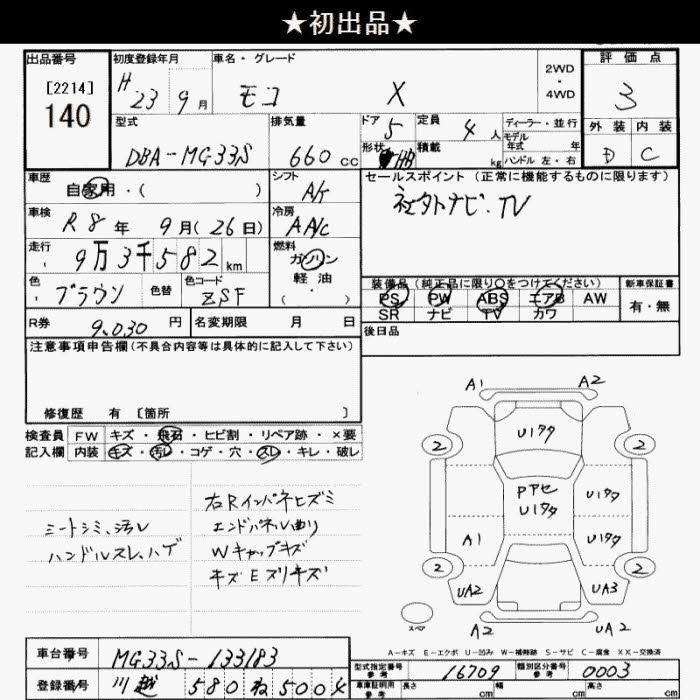 ★初出品★
出品番号 [2214] 140
初度登録年月 H 23 9月
車名・グレード モコ X
2WD・4WD
評価点 3
型式 DBA-MG33S
排気量 660 cc
ドア 5 定員 4人
形状 HB 積載 kg
ディーラー・並行
モデル年式 年
ハンドル 左・右
外装 内装
D C
車歴 自家用・( )
シフト A/t
セールスポイント (正常に機能するものに限ります)
社外ナビ・TV
車検 R8年 9月(26日)
冷房 AA/c
走行 9万3千582km
燃料 ガソリン
軽油
・( )
色 ブラウン 色替 色コード ZSF
装備品(純正品に限り○をつけてください)
PS PW ABS エアB AW
SR ナビ TV カワ
新車保証書
有・無
R券 9,030円 名変期限 月 日
後日品
注意事項申告欄(不具合内容等は具体的に記入して下さい)
修復歴 有 [箇所 ]
検査員記入欄
FW キズ・飛石・ヒビ割・リペア跡・×要
内装 キズ・汚レ・コゲ・穴・スレ・キレ・破レ
シートシミ、汚レ
ハンドルスレ、ハゲ
右Rインパネヒズミ
エンドパネル曲り
Wキャップキズ
キズEズリキズ
A1 A2
U1タタ
2 2
Pアセ
U1タタ
U1タタ
A1 U1タタ
2 2
UA2 UA3
スペア
A2 UA2
A-キズ E-エクボ U-凹み W-補修跡 S-サビ C-腐食 XX-交換済
車台番号 MG33S-133183
登録番号 川越 580 ね 5004
型式指定番号 参考 16709 類別区分番号 参考 0003
車庫証明用 参考 長さ cm 幅 cm 高さ cm